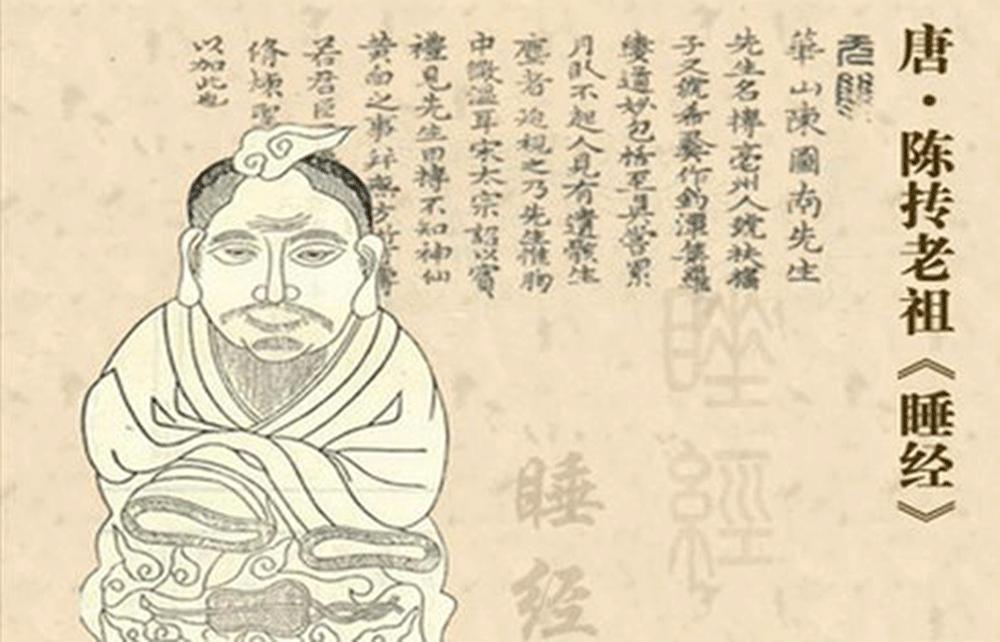 唐·陈抟老祖《睡经》
華山陳圖南先生
先生名摶亳州人號扶搖
子又號希夷作釣潭集羅
縷道妙包括至真嘗累
月臥不起人見有遺骸生
塵者迫視之乃先生惟胸
中微溫耳宋太宗詔以賓
禮見先生曰摶不知神仙
黃白之事
若君臣
修煉
以加此也
睡經
睡经